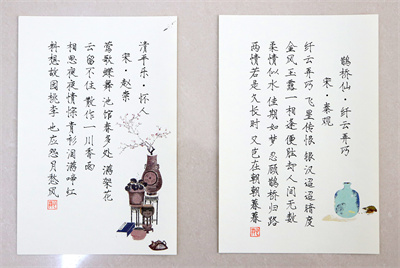 清平乐·怀人
宋·赵崇
莺歌蝶舞 池馆春多处 满架花
云留不住 散作一川香雨
相思夜夜情悰 青衫泪满啼红
料想故园桃李 也应怨月愁风
鹊桥仙·纤云弄巧
宋·秦观
纤云弄巧 飞星传恨 银汉迢迢暗度
金风玉露一相逢 便胜却人间无数
柔情似水 佳期如梦 忍顾鹊桥归路
两情若是久长时 又岂在朝朝暮暮